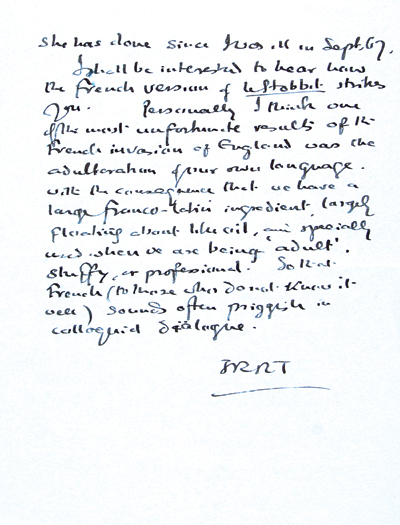 she has done since I was ill in Sept. 67.
I shall be interested to hear how
the French version of Le Hobbit strikes
you. Personally I think one
of the most unfortunate results of the
French invasion of England was the
adulteration of our own language.
with the consequence that we have a
large Franco-Latin ingredient, largely
floating about like oil, and specially
used when we are being 'adult',
stuffy, or professional. So that
French (to those who do not know it
well) sounds often priggish in
colloquial dialogue.
JRRT